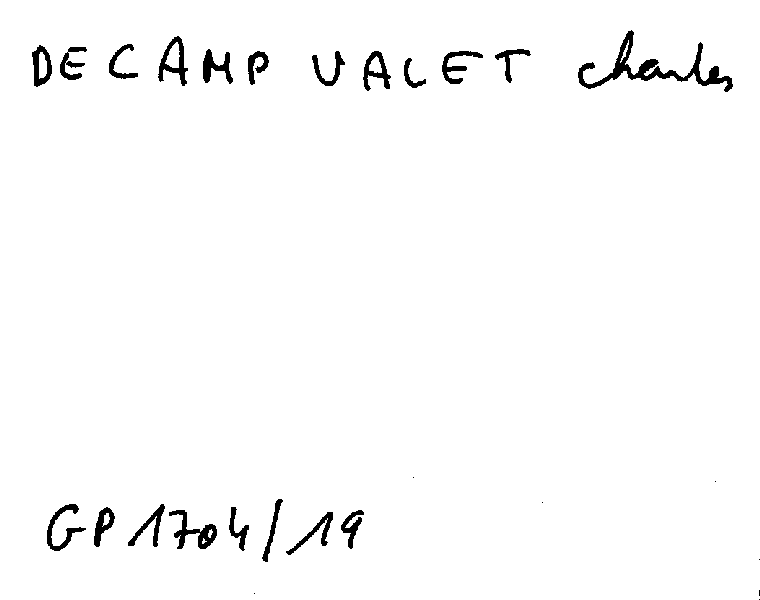 DECAMP VALET Charles
GP 1704/19